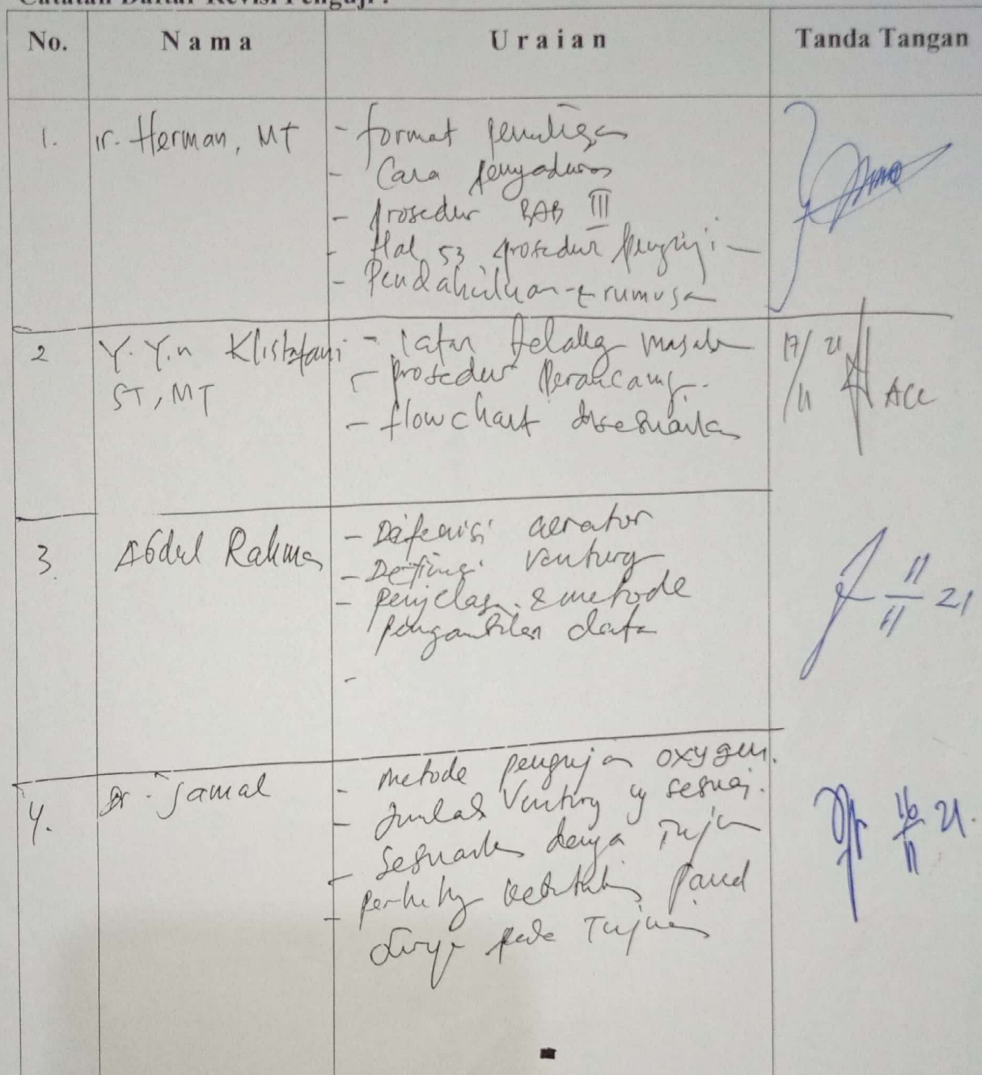 Catatan Daftar Revisi Penguji :
No. Nama Uraian Tanda Tangan
1. Ir. Herman, MT - format penulisan
- Cara penyaduran
- prosedur BAB III
- Hal 53 prosedur penguji
- Pendahuluan - rumusa
2 Y. Yn Klistafani - latar belakag masala 17/11 21 ACC
ST, MT - prosedur Perancang.
- flowchart disesuaika
3. Abdul Rahma - Difenisi aerator
- Defini ventury
- penjelas & metode 11/11 21
pengambilan data
-
4. Dr. Jamal - metode pengujian oxygen.
- Jumlah Ventury yg sesuai. 16/11 21.
- Sesuaika denga Tujua
- kebutuh pand
pada Tujua